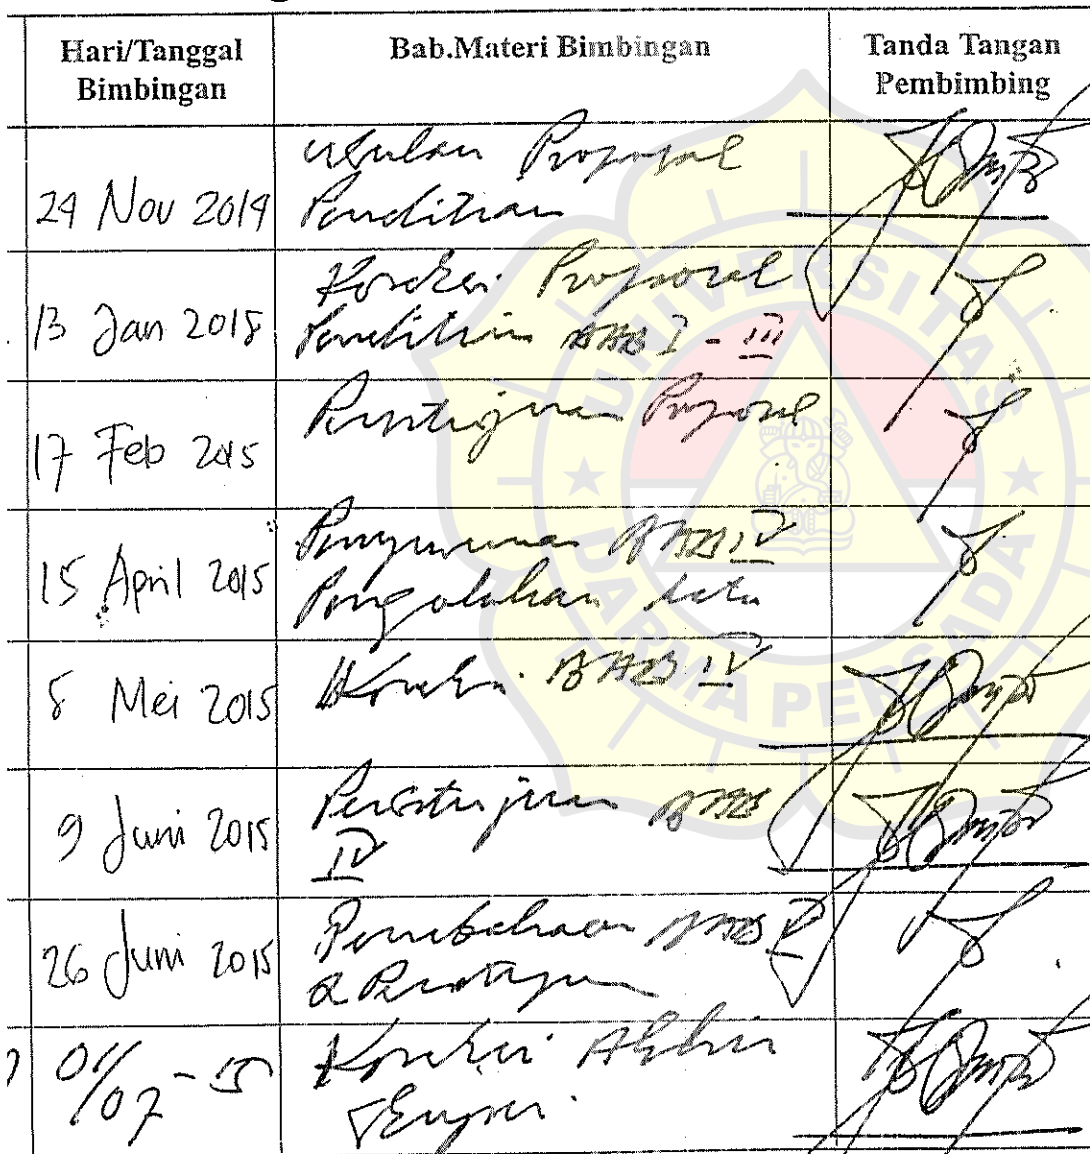 Hari/Tanggal
Bimbingan
Bab.Materi Bimbingan
Tanda Tangan
Pembimbing
24 Nov 2014
Usulan Proposal
Penelitian
13 Jan 2015
Koreksi Proposal
Penelitian BAB I - III
17 Feb 2015
Persetujuan Proposal
15 April 2015
Penyusunan BAB IV
Pengolahan data
8 Mei 2015
Koreksi BAB IV
9 Juni 2015
Persetujuan BAB
IV
26 Juni 2015
BAB V
& Persetujuan
01/07-15
Koreksi Akhir
Skripsi.
UNIVERSITAS
DARMA PERSADA